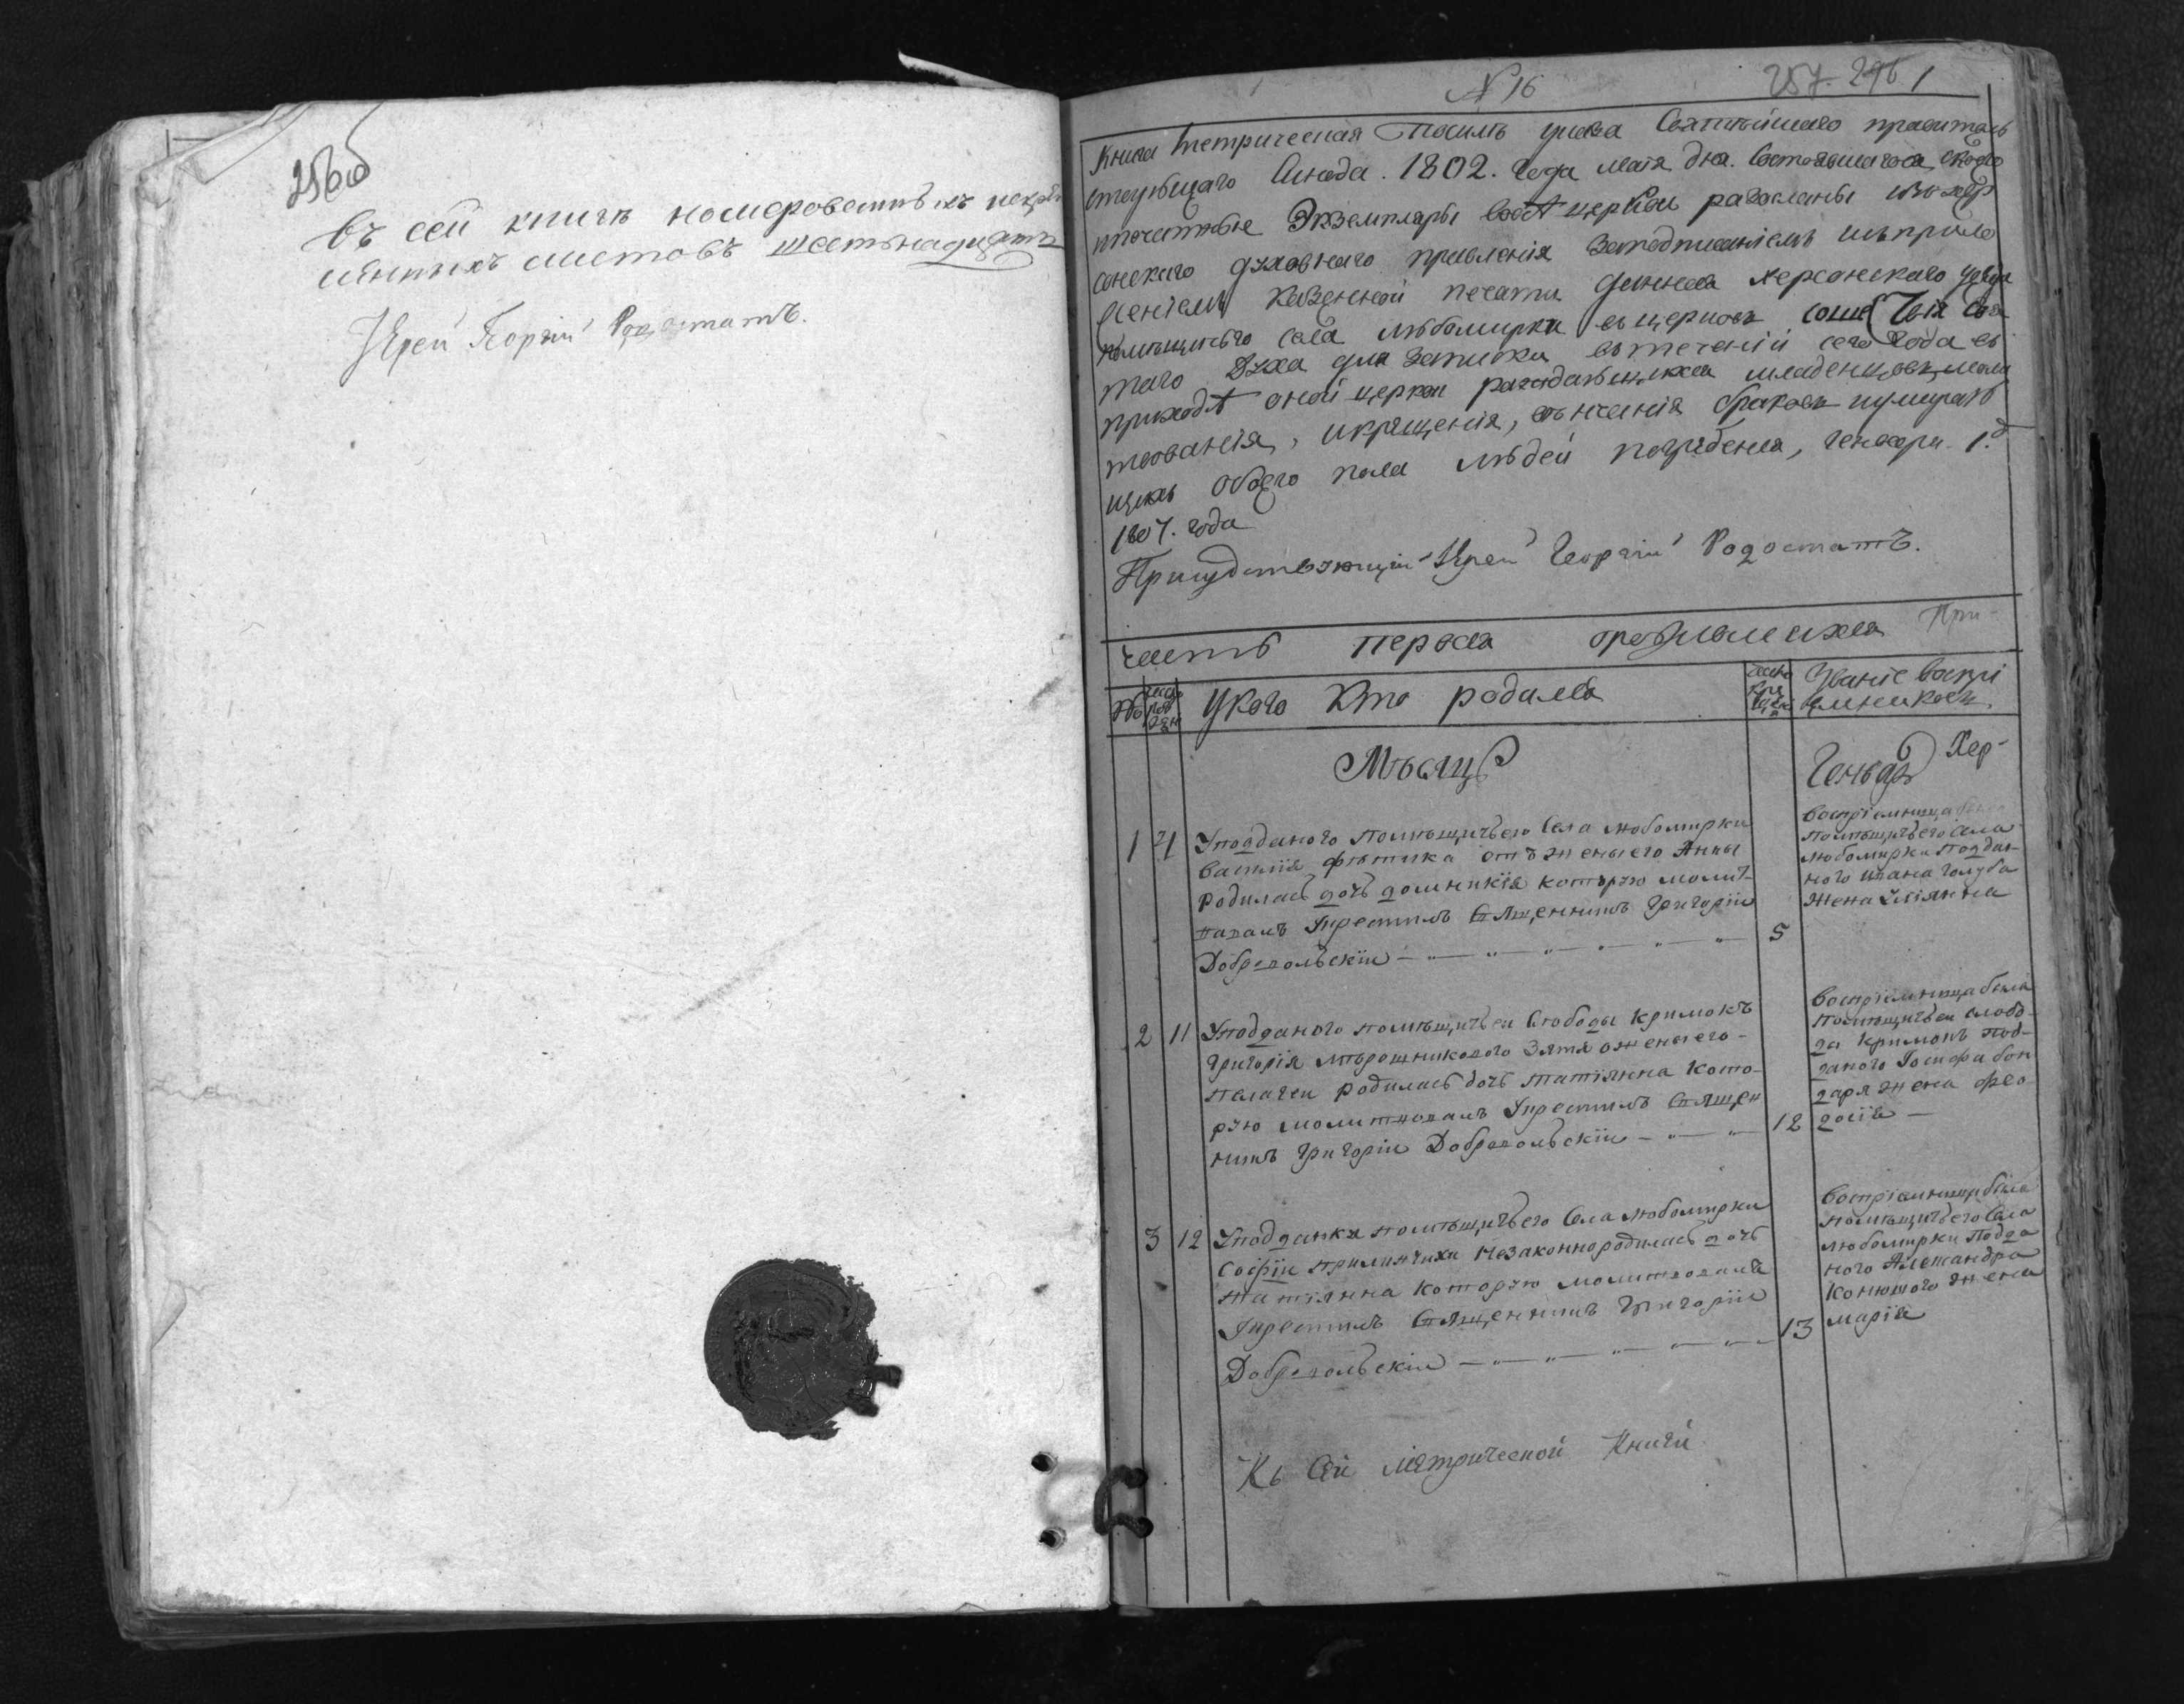 256об
Въ сей книгѣ номерованныхъ искрѣ
пленныхъ листовъ шестьнадцять
Іерей Георгій Родостатъ.
№ 16
257-296 1
Книга Метрическая Посилѣ указа Святѣйшаго правитель
ствующаго Синода. 1802. Года маія дня. Состоявшагося, скоего
печатные Экземпляры повсѣ церкви разосланы изъ хер
сонскаго духовнаго правленія заподписаніемъ иприло
женіемъ казенной печати дання херсонскаго уезда
помѣщичьго села любомирки въ церковь Сошествія Свя
таго Духа для записки втеченіи сего года въ
приходѣ оной церкви раждающихся младенцовъ, моли
твованія, икрященія, вѣнчанія браковъ иумираю
щихъ обоего пола людей погрѣбенія, генваря 1.д
1807. года
Присудствующій Іерей Георгій Родостатъ.
часть первая ородившихся При-
№ число рожден укого кто родился число креще Званіе воспрі
емниковъ
Мѣсяцъ Генварь Хер-
1 4 Уподданого помѣщичьего села любомирки
Василія фѣтика отъ жены его Анны
родилась дочь домникія которую молит-
вовалъ Iкрестилъ Священникъ Григорій
Добровольскій — 5
Воспріемница была
помѣщичьего села
любомирки поддан-
ного ивана голуба
жена Уліянна
2 11 Уподданого помѣщичьеи Слободы Кримокъ
Григорія мѣрошниковаго Зятя ожены его
пелагеи родилась дочь татіянна кото-
рую молитвовалъ Iкрестилъ Священ
никъ Григорій Добровольскій — 12
Воспріемница была
помѣщичьеи слобо-
ды кримокъ под-
даного Іосифа бон
даря жена фео-
досія —
3 12 Уподданки помѣщичьего Села любомирки
Софіи незаконнородилась дочь
татіянна которую молитвовалъ
Iкрестилъ Священникъ Григорій
Добровольскій — 13
Воспріемница была
помѣщичьего Села
любомирки подда
ного Александра
Конюшого жена
марія
Къ Сей метрической Книгѣ